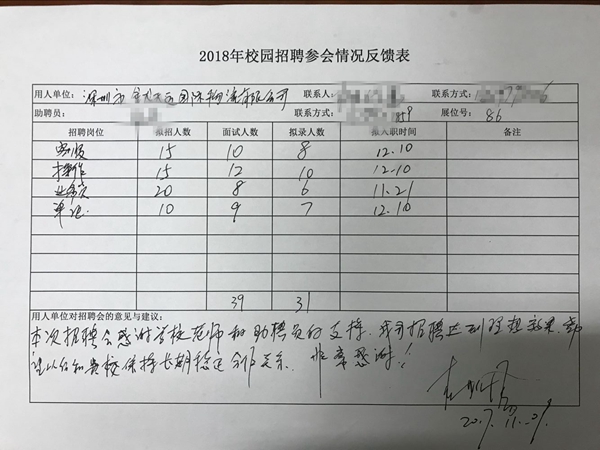 2018年校园招聘参会情况反馈表
用人单位: 深圳市 国际物流有限公司 联系人: 联系方式:
助聘员: 联系方式: 859 展位号: 86
招聘岗位 拟招人数 面试人数 拟录人数 拟入职时间 备注
客服 15 10 8 12.10
操作 15 12 10 12.10
业务员 20 8 6 11.21
单证 10 9 7 12.10
39 31
用人单位对招聘会的意见与建议:
本次招聘会感谢学校老师和助聘员的支持、我司招聘达到理想效果、希
望以后和贵校保持长期稳定合作关系. 非常感谢!
2017.11.